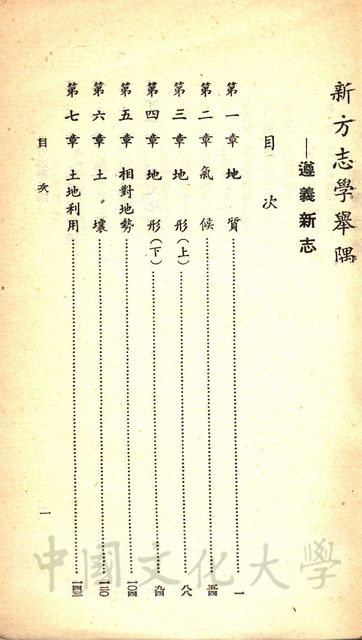 新方志學舉隅
——遵義新志
目次
第一章 地質……一
第二章 氣候……五四
第三章 地形(上)……八八
第四章 地形(下)……九四
第五章 相對地勢……一〇四
第六章 土壤……一二〇
第七章 土地利用……一四三
目次
一
中國文化大學